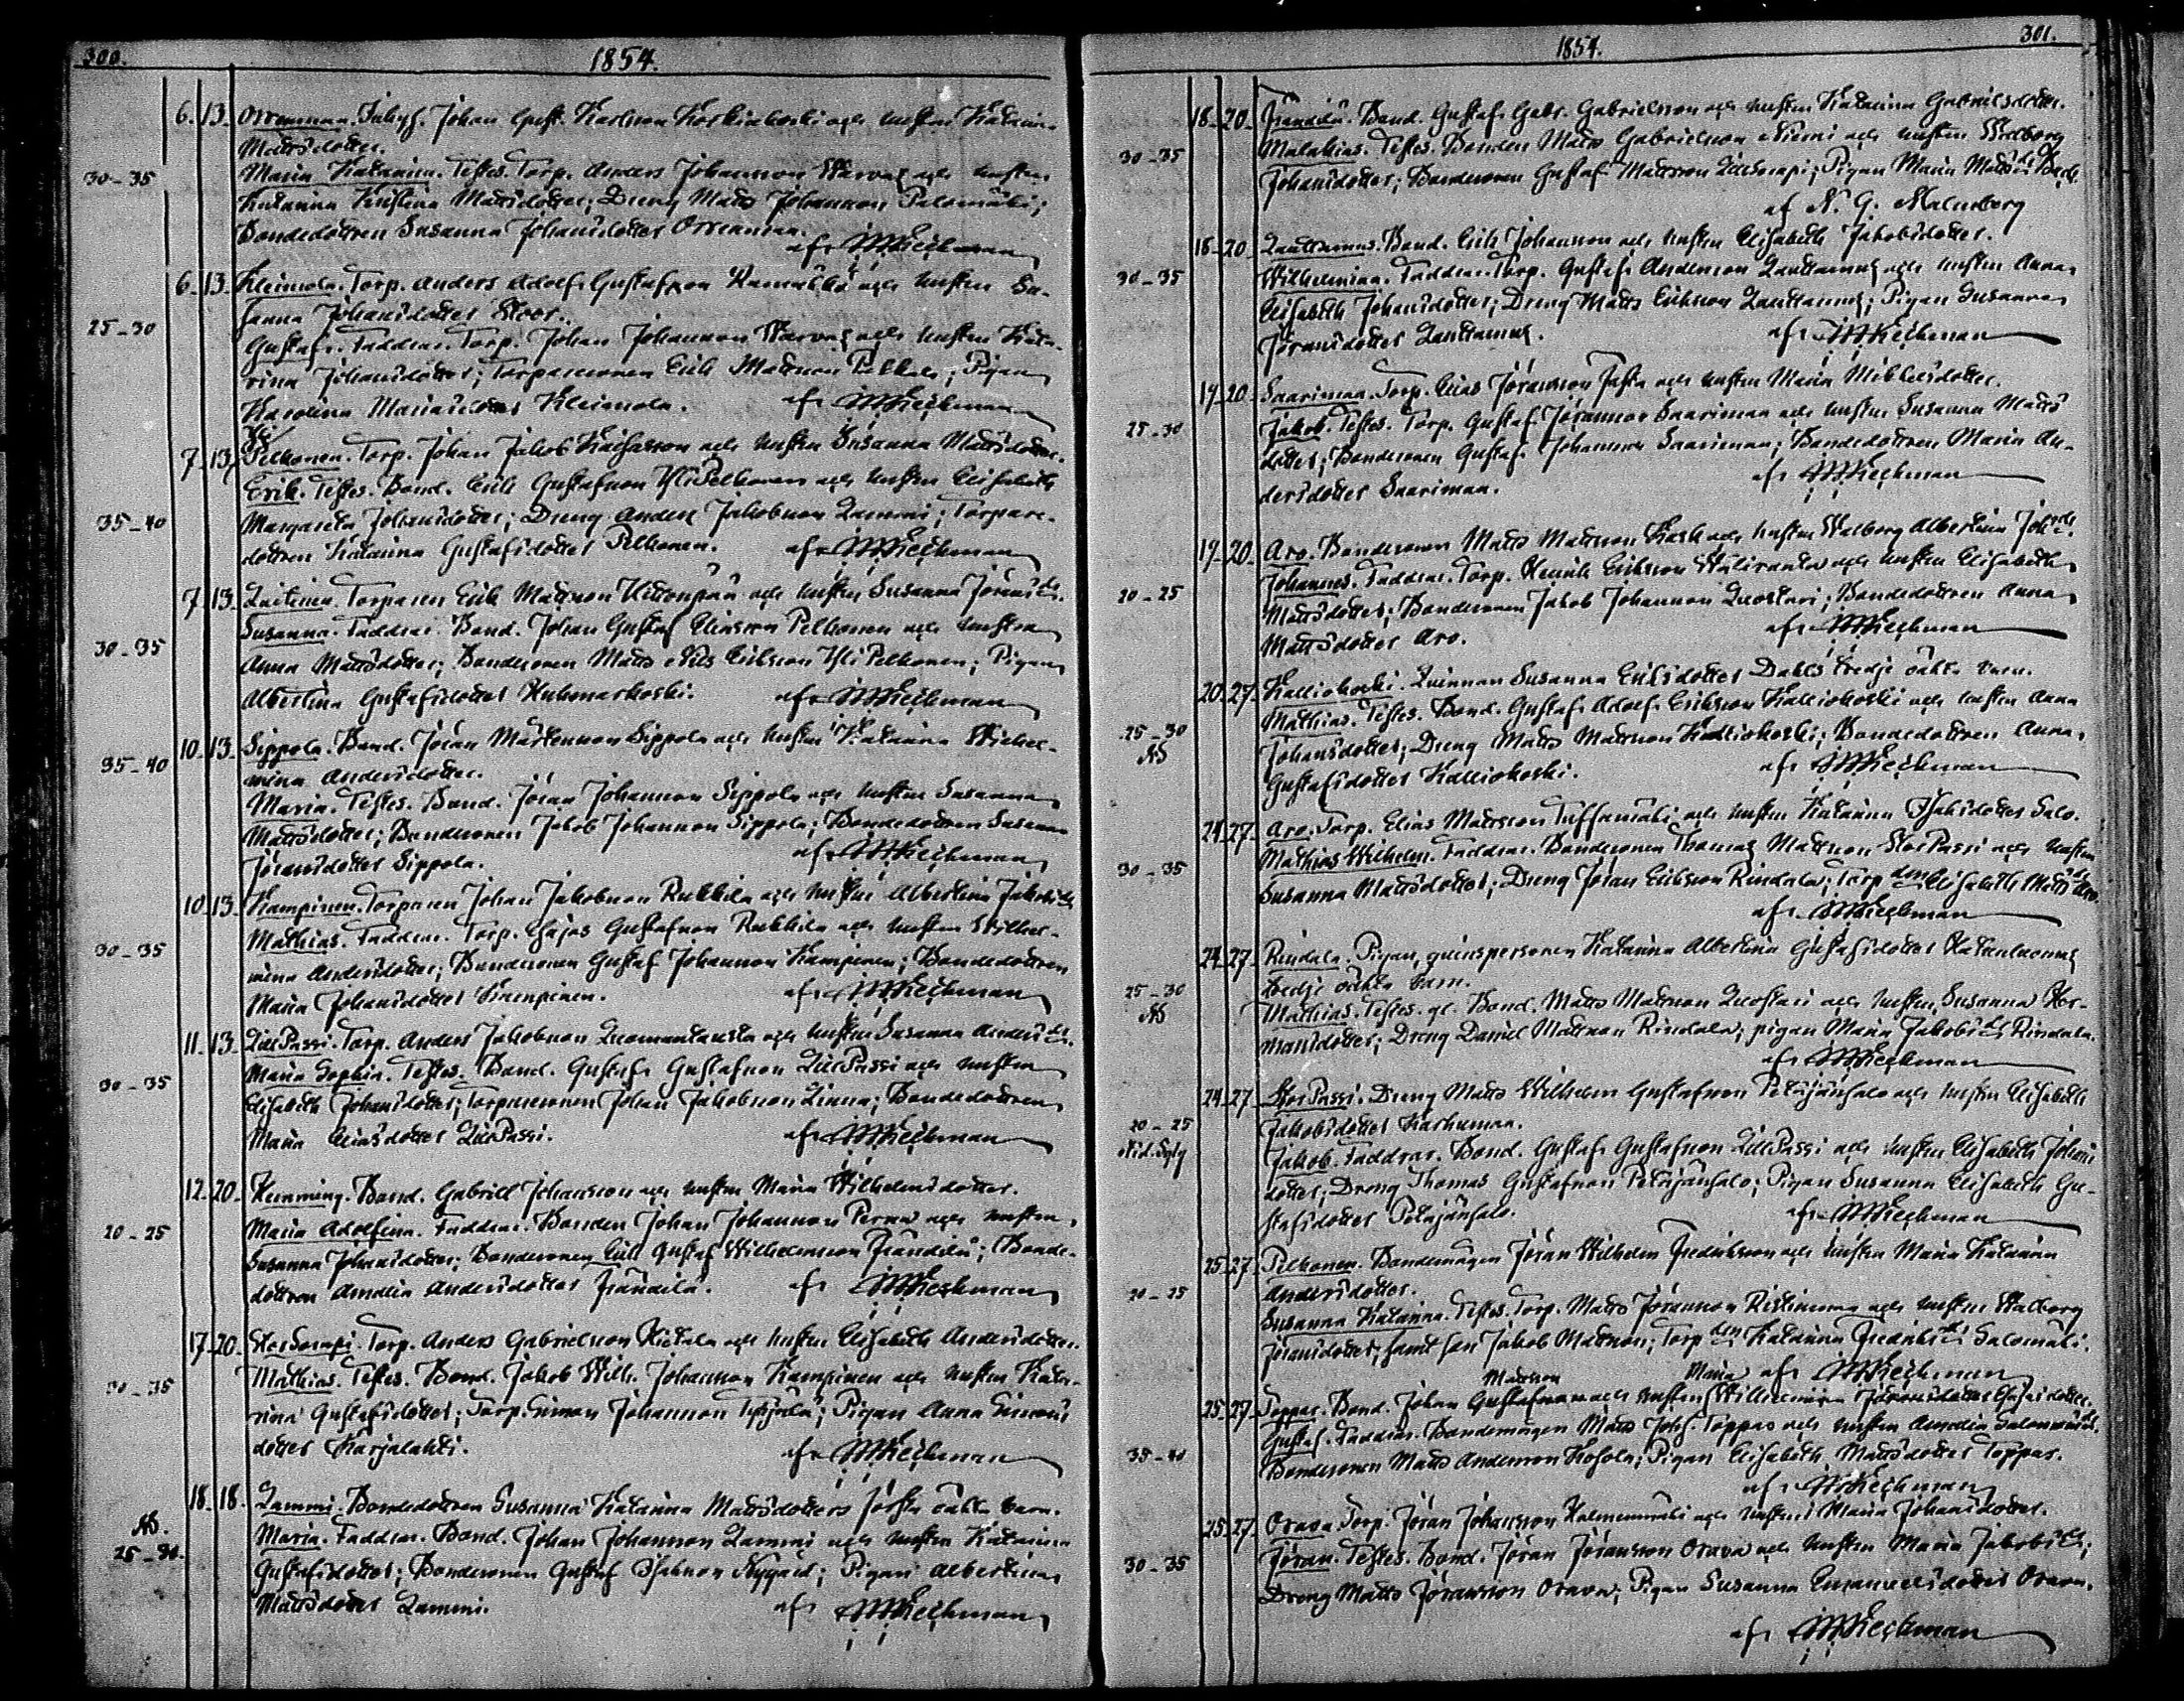 300.
1854.
6. 13. Orrenmaa. Inhys. Johan Gust. Karlsson Koskinkoski och hustru Katarina
Mattsdotter.
30-35 Maria Katarina. Testes. Torp. Anders Johansson Warvas och hustru
Katarina Kristina Mattsdotter; Dreng Matts Johansson Palomäki;
Bondedottren Susanna Johansdotter Orrenmaa.
af
6. 13. Kleimola. Torp. Anders Adolf Gustafsson och hustru Su-
sanna Johansdotter Stoor.
25-30 Gustaf. Faddrar. Torp. Johan Johansson Warvas och hustru Kata-
rina Johansdotter; Torparesonen Erik Mattsson Pekkala; Pigan
Karolina Mariasdotter Kleimola. af
7. 13. Yli Pelkonen. Torp. Johan Jakob och hustru Susanna Mattsdotter.
Erik. Testes. Bond. Erik Gustafsson Yli Pelkonen och hustru Elisabeth
35-40 Margareta Johansdotter; Dreng Anders Jakobsson Lammi; Torpare-
dottren Katarina Gustafsdotter Pelkonen. af
7. 13. Laitinen. Torparen Erik Mattsson och hustru Susanna Jöransdr.
30-35 Susanna. Faddrar. Bond. Johan Gustaf Eliasson Pelkonen och hustru
Anna Mattsdotter; Bondesonen Matts Nils Eriksson Yli Pelkonen; Pigan
Albertina Gustafsdotter Huhmarkoski. af
10. 13. Sippola. Bond. Jöran Mårtensson Sippola och hustru Katarina Wilhel-
35-40 mina Andersdotter.
Maria. Testes. Bond. Jöran Johansson Sippola och hustru Susanna
Mattsdotter; Bondesonen Jakob Johansson Sippola; Bondedottren Susanna
Jöransdotter Sippola. af
10. 13. Kampinen. Torparen Johan Jakobsson Rukkila och hustru Albertina Jakobsdr
30-35 Mathias. Faddrar. Torp. Esajas Gustafsson Rukkila och hustru Wilhel-
mina Andersdotter; Bondesonen Gustaf Johansson Kampinen; Bondedottren
Maria Johansdotter Kampinen. af
11. 13. LillPassi. Torp. Anders Jakobsson Luomankauska och hustru Susanna Andersdr.
30-35 Maria Sophia. Testes. Bond. Gustaf Gustafsson LillPassi och hustru
Elisabeth Johansdotter; Torparesonen Johan Jakobsson Linna; Bondedottren
Maria Eliasdotter LillPassi. af
12. 20. Hemming. Bond. Gabriel Johansson och hustru Maria Wilhelmsdotter.
20-25 Maria Adolfina. Faddrar. Bonden Johan Johansson Perna och hustru
Susanna Johansdotter; Bondesonen Erik Gustaf Wilhelmsson Frändilä; Bonde-
dottren Amalia Andersdotter Frändilä. af
17. 20. StorSorapi. Torp. Anders Gabrielsson Hietala och hustru Elisabeth Andersdotter.
30-35 Mathias. Testes. Bond. Jakob Wilh. Johansson Kampinen och hustru Kata-
rina Gustafsdotter; Torp. Simon Johansson; Pigan Anna Simons
dotter Karjalahti. af
18. 18. Lammi. Bondedottren Susanna Katarina Mattsdotters förste oäkta barn.
Ab. 25-30. Maria. Faddrar. Bond. Johan Johansson Lammi och hustru Katarina
Gustafsdotter; Bondesonen Gustaf Isaksson Nygård; Pigan Albertina
Mattsdotter Lammi. af
1854.
301.
18. 20. Frändilä. Bond. Gustaf Gabr. Gabrielsson och hustru Katarina Gabrielsdotter.
30-35 Malakias. Testes. Bonden Matts Gabrielsson Niemi och hustru Walborg
Johansdotter; Bondesonen Gustaf Mattsson LillSorapi; Pigan Maria Mattsdr
af N. G. Malmberg
18. 20. Lauttamus. Bond. Erik Johansson och hustru Elisabeth Jakobsdotter.
30-35 Wilhelmina. Faddrar. Torp. Gustaf Andersson Lauttamus och hustru Anna
Elisabeth Johansdotter; Dreng Matts Eriksson Lauttamus; Pigan Susanna
Jöransdotter Lauttamus. af
19. 20. Saarimaa. Torp. Elias Jöransson och hustru Maria Mikkelsdotter.
25-30 Jakob. Testes. Torp. Gustaf Jöransson Saarimaa och hustru Susanna Matts
dotter; Bondesonen Gustaf Johansson Saarimaa; Bondedottren Maria An-
dersdotter Saarimaa. af
19. 20. Aro. Bondesonen Matts Mattsson och hustru Walborg Albertina Joh.dr.
20-25 Johannes. Faddrar. Torp. Henrik Eriksson Wäliranta och hustru Elisabeth
Mattsdotter; Bondesonen Jakob Johansson Luostari; Bondedottren Anna
Mattsdotter Aro. af
20. 27. Kalliokoski. Quinnan Susanna Eriksdotter Dahls tredje oäkta barn.
25-30 Mathias. Testes. Bond. Gustaf Adolf Eriksson Kalliokoski och hustru Anna
Ab Johansdotter; Dreng Matts Mattsson Kalliokoski; Bondedottren Anna
Gustafsdotter Kalliokoski. af
24. 27. Aro. Torp. Elias Mattsson och hustru Katarina Isaksdotter Salo.
30-35 Mathias Wilhelm. Faddrar. Bondesonen Thomas Mattsson StorPassi och hustru
Susanna Mattsdotter; Dreng Jöran Eriksson Rindala; Torp.den Elisabeth Mattsdr Aro.
af
24. 27. Rindala. Pigan, quinspersonen Katarina Albertina Gustafsdotter
25-30 tredje oäkta barn.
Ab Mathias. Testes. gl. Bond. Matts Mattsson Luostari och hustru Susanna Her-
mansdotter; Dreng Daniel Mattsson Rindala; pigan Maria Jakobsdr Rindala.
af
24. 27. StorPassi. Dreng Matts Wilhelm Gustafsson Petäjänsalo och hustru Elisabeth
20-25 Jakobsdotter Karhumaa.
Jakob. Faddrar. Bond. Gustaf Gustafsson LillPassi och hustru Elisabeth Johans
dotter; Dreng Thomas Gustafsson Petäjänsalo; Pigan Susanna Elisabeth Gu-
stafsdotter Petäjänsalo. af
25. 27. Pelkonen. Bondemågen Jöran Wilhelm Fredriksson och hustru Maria Katarina
20-25 Andersdotter.
Susanna Katarina. Testes. Torp. Matts Jöransson Ristimaa och hustru Walborg
Jöransdotter, samt son Jakob Mattsson; Torp.den Katarina Fredriksdr Salomäki.
af
Mattsson Maria
25. 27. Toppar. Bond. Johan Gustafsson och hustru Wilhelmina Jöransdotter Esaidotter.
Gustaf. Faddrar. Bondemågen Matts Johs. Toppar och hustru Amalia Salomonsdr.
35-40 Bondesonen Matts Andersson Kosola; Pigan Elisabeth Mattsdotter Toppar.
af
25. 27. Orava. Torp. Jöran Johansson och hustru Maria Johansdotter.
30-35 Jöran. Testes. Bond. Jöran Jöransson Orava och hustru Maria Jakobsdr;
Dreng Matts Jöransson Orava; Pigan Susanna Emanuelsdotter Orava.
af